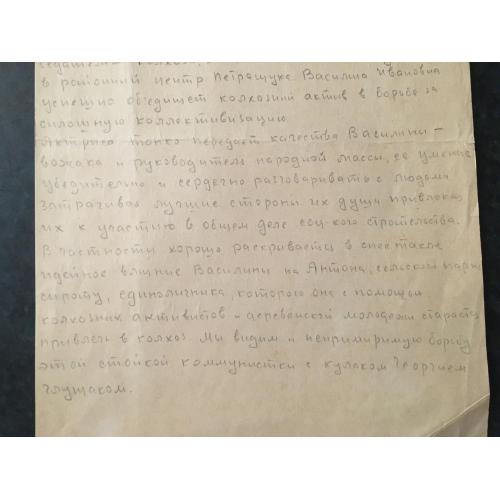 седателем колхоза,
в районный центр Петращуке. Василина Ивановна
успешно объединяет колхозный актив в борьбе за
сплошную коллективизацию.
Актриса тонко передаёт качества Василины –
вожака и руководителя народной массы, ее умение
убедительно и сердечно разговаривать с людьми
затрагивая лучшие стороны их души привлекая
их к участию в общем деле соц-кого строительства.
В частности хорошо раскривается в спектакле
идейное влияние Василини на Антона, сельской парня
сироту, единоличника, которого она с помощью
колхозних активистов и деревенской молодежи старается
привлечь в колхоз. Мы видим и непримиримую борьбу
этой стойкой коммунистки с кулаком Георгием
Глущаком.